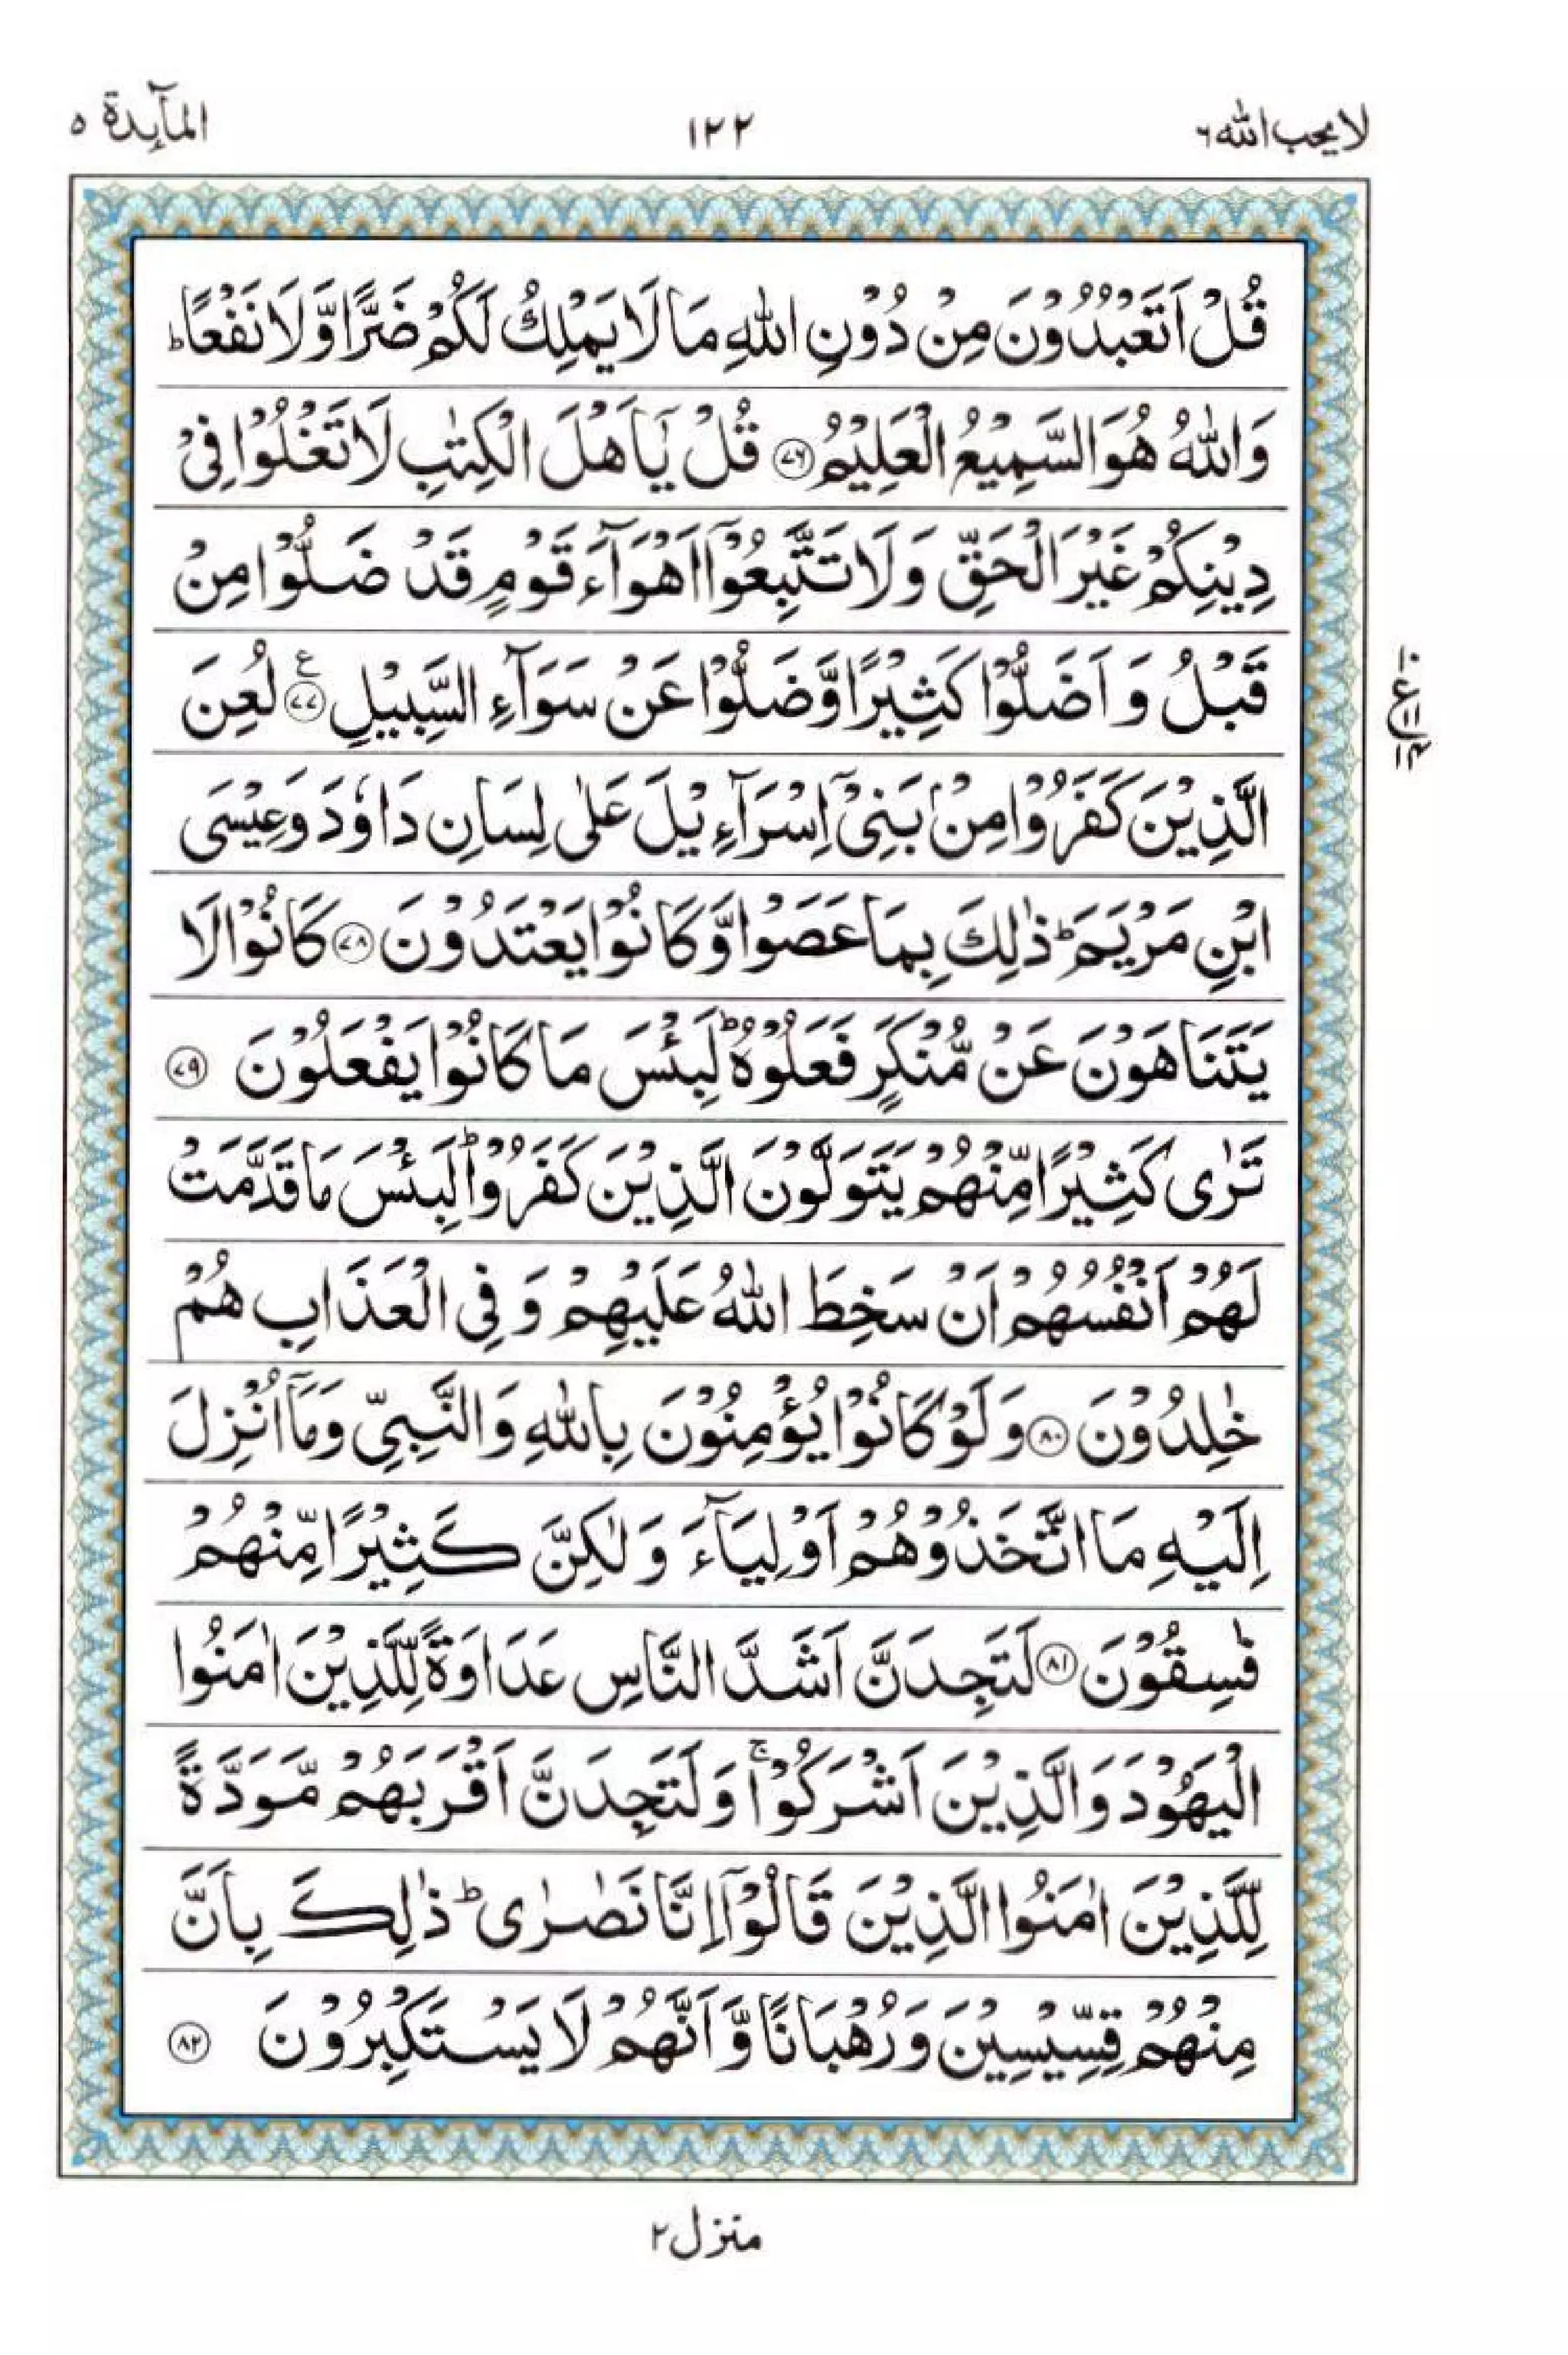 لا يحب الله ٦
١٢٢
المآىِٕدة ٥
قُلْ اَتَعْبُدُوْنَ مِنْ دُوْنِ اللّٰهِ مَا لَا يَمْلِكُ لَكُمْ ضَرًّا وَّلَا نَفْعًا ؕ
وَاللّٰهُ هُوَ السَّمِيْعُ الْعَلِيْمُ ﴿۷۶﴾ قُلْ يٰۤاَهْلَ الْكِتٰبِ لَا تَغْلُوْا فِيْ
دِيْنِكُمْ غَيْرَ الْحَقِّ وَلَا تَتَّبِعُوْۤا اَهْوَآءَ قَوْمٍ قَدْ ضَلُّوْا مِنْ
قَبْلُ وَ اَضَلُّوْا كَثِيْرًا وَّضَلُّوْا عَنْ سَوَآءِ السَّبِيْلِ ﴿۷۷﴾ ع لُعِنَ
الَّذِيْنَ كَفَرُوْا مِنْۢ بَنِيْۤ اِسْرَآءِيْلَ عَلٰى لِسَانِ دَاوٗدَ وَعِيْسَى
ابْنِ مَرْيَمَ ؕ ذٰلِكَ بِمَا عَصَوْا وَّكَانُوْا يَعْتَدُوْنَ ﴿۷۸﴾ كَانُوْا لَا
يَتَنَاهَوْنَ عَنْ مُّنْكَرٍ فَعَلُوْهُ ؕ لَبِئْسَ مَا كَانُوْا يَفْعَلُوْنَ ﴿۷۹﴾
تَرٰى كَثِيْرًا مِّنْهُمْ يَتَوَلَّوْنَ الَّذِيْنَ كَفَرُوْا ؕ لَبِئْسَ مَا قَدَّمَتْ
لَهُمْ اَنْفُسُهُمْ اَنْ سَخِطَ اللّٰهُ عَلَيْهِمْ وَ فِي الْعَذَابِ هُمْ
خٰلِدُوْنَ ﴿۸۰﴾ وَلَوْ كَانُوْا يُؤْمِنُوْنَ بِاللّٰهِ وَالنَّبِيِّ وَمَاۤ اُنْزِلَ
اِلَيْهِ مَا اتَّخَذُوْهُمْ اَوْلِيَآءَ وَلٰكِنَّ كَثِيْرًا مِّنْهُمْ
فٰسِقُوْنَ ﴿۸۱﴾ لَتَجِدَنَّ اَشَدَّ النَّاسِ عَدَاوَةً لِّلَّذِيْنَ اٰمَنُوا
الْيَهُوْدَ وَالَّذِيْنَ اَشْرَكُوْا ۚ وَلَتَجِدَنَّ اَقْرَبَهُمْ مَّوَدَّةً
لِّلَّذِيْنَ اٰمَنُوا الَّذِيْنَ قَالُوْۤا اِنَّا نَصٰرٰى ؕ ذٰلِكَ بِاَنَّ
مِنْهُمْ قِسِّيْسِيْنَ وَرُهْبَانًا وَّاَنَّهُمْ لَا يَسْتَكْبِرُوْنَ ﴿۸۲﴾
منزل ٢